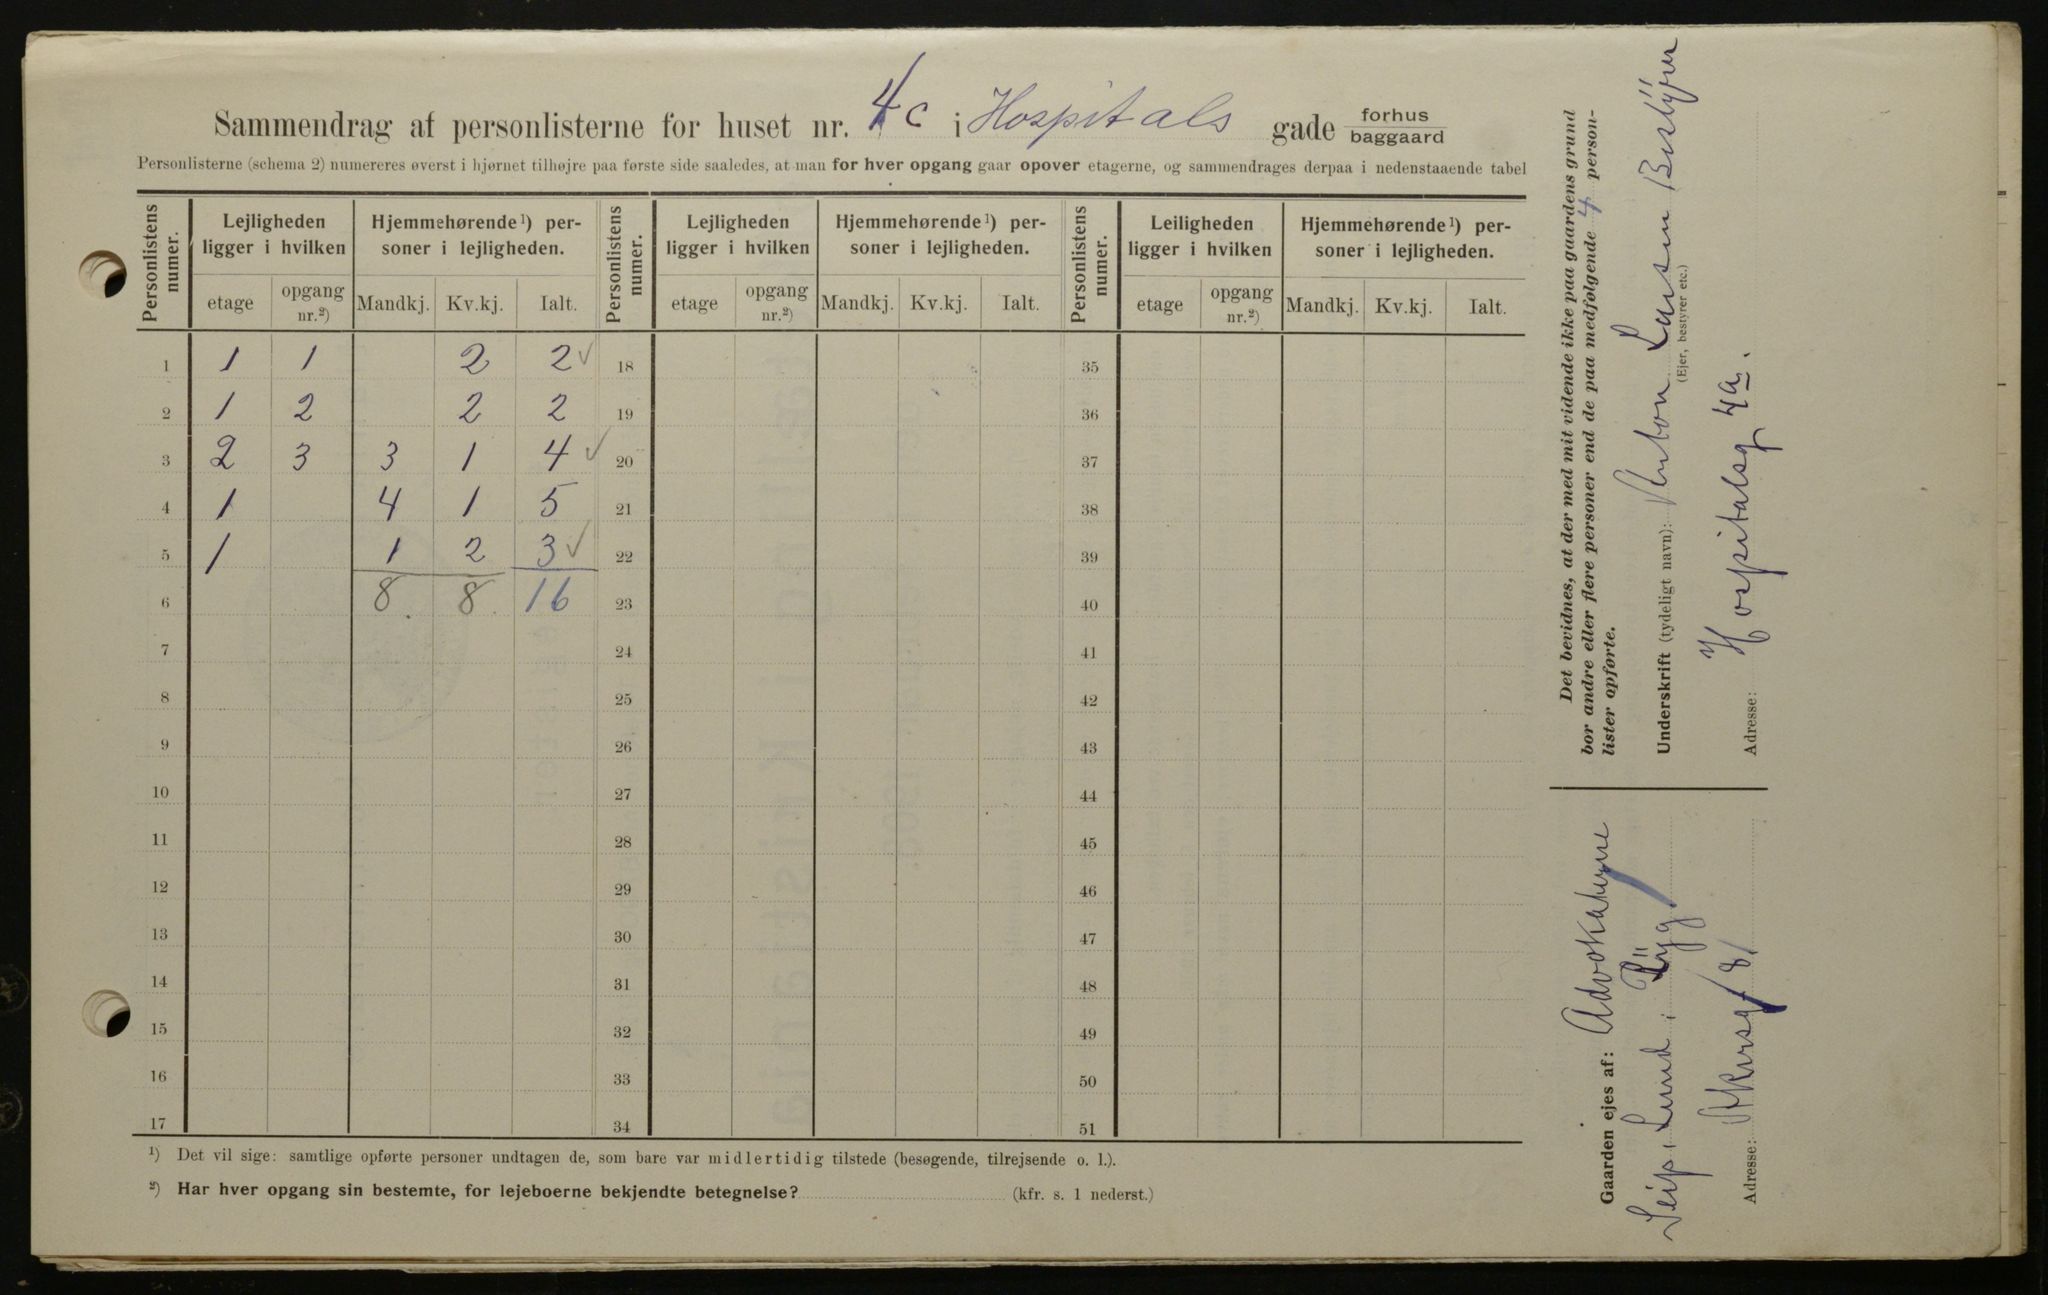 Sammendrag af personlisterne for huset nr. 4c i Hospitals gade forhus baggaard
Personlisterne (schema 2) numereres øverst i hjørnet tilhøjre paa første side saaledes, at man for hver opgang gaar opover etagerne, og sammendrages derpaa i nedenstaaende tabel
Personlistens numer.
Lejligheden ligger i hvilken
Hjemmehørende ¹) personer i lejligheden.
Personlistens numer.
Lejligheden ligger i hvilken
Hjemmehørende ¹) personer i lejligheden.
Personlistens numer.
Leiligheden ligger i hvilken
Hjemmehørende ¹) personer i lejligheden.
etage opgang nr.²) Mandkj. Kv.kj. Ialt. etage opgang nr.²) Mandkj. Kv.kj. Ialt. etage opgang nr.²) Mandkj. Kv.kj. Ialt.
1 1 1 2 2 ✓ 18 35
2 1 2 2 2 19 36
3 2 3 3 1 4 ✓ 20 37
4 1 4 1 5 21 38
5 1 1 2 3 ✓ 22 39
6 8 8 16 23 40
7 24 41
8 25 42
9 26 43
10 27 44
11 28 45
12 29 46
13 30 47
14 31 48
15 32 49
16 33 50
17 34 51
¹) Det vil sige: samtlige opførte personer undtagen de, som bare var midlertidig tilstede (besøgende, tilrejsende o. l.).
²) Har hver opgang sin bestemte, for lejeboerne bekjendte betegnelse? (kfr. s. 1 nederst.)
Det bevidnes, at der med mit vidende ikke paa gaardens grund
bor andre eller flere personer end de paa medfølgende 4 person-
lister opførte.
Underskrift (tydeligt navn): Anton Larsen Bestÿrer
(Ejer, bestyrer etc.)
Adresse: Hospitalsg 4a.
Gaarden ejes af: Advokaterne
Seip, Lund i Rÿg.
Adresse: Akersg 8,